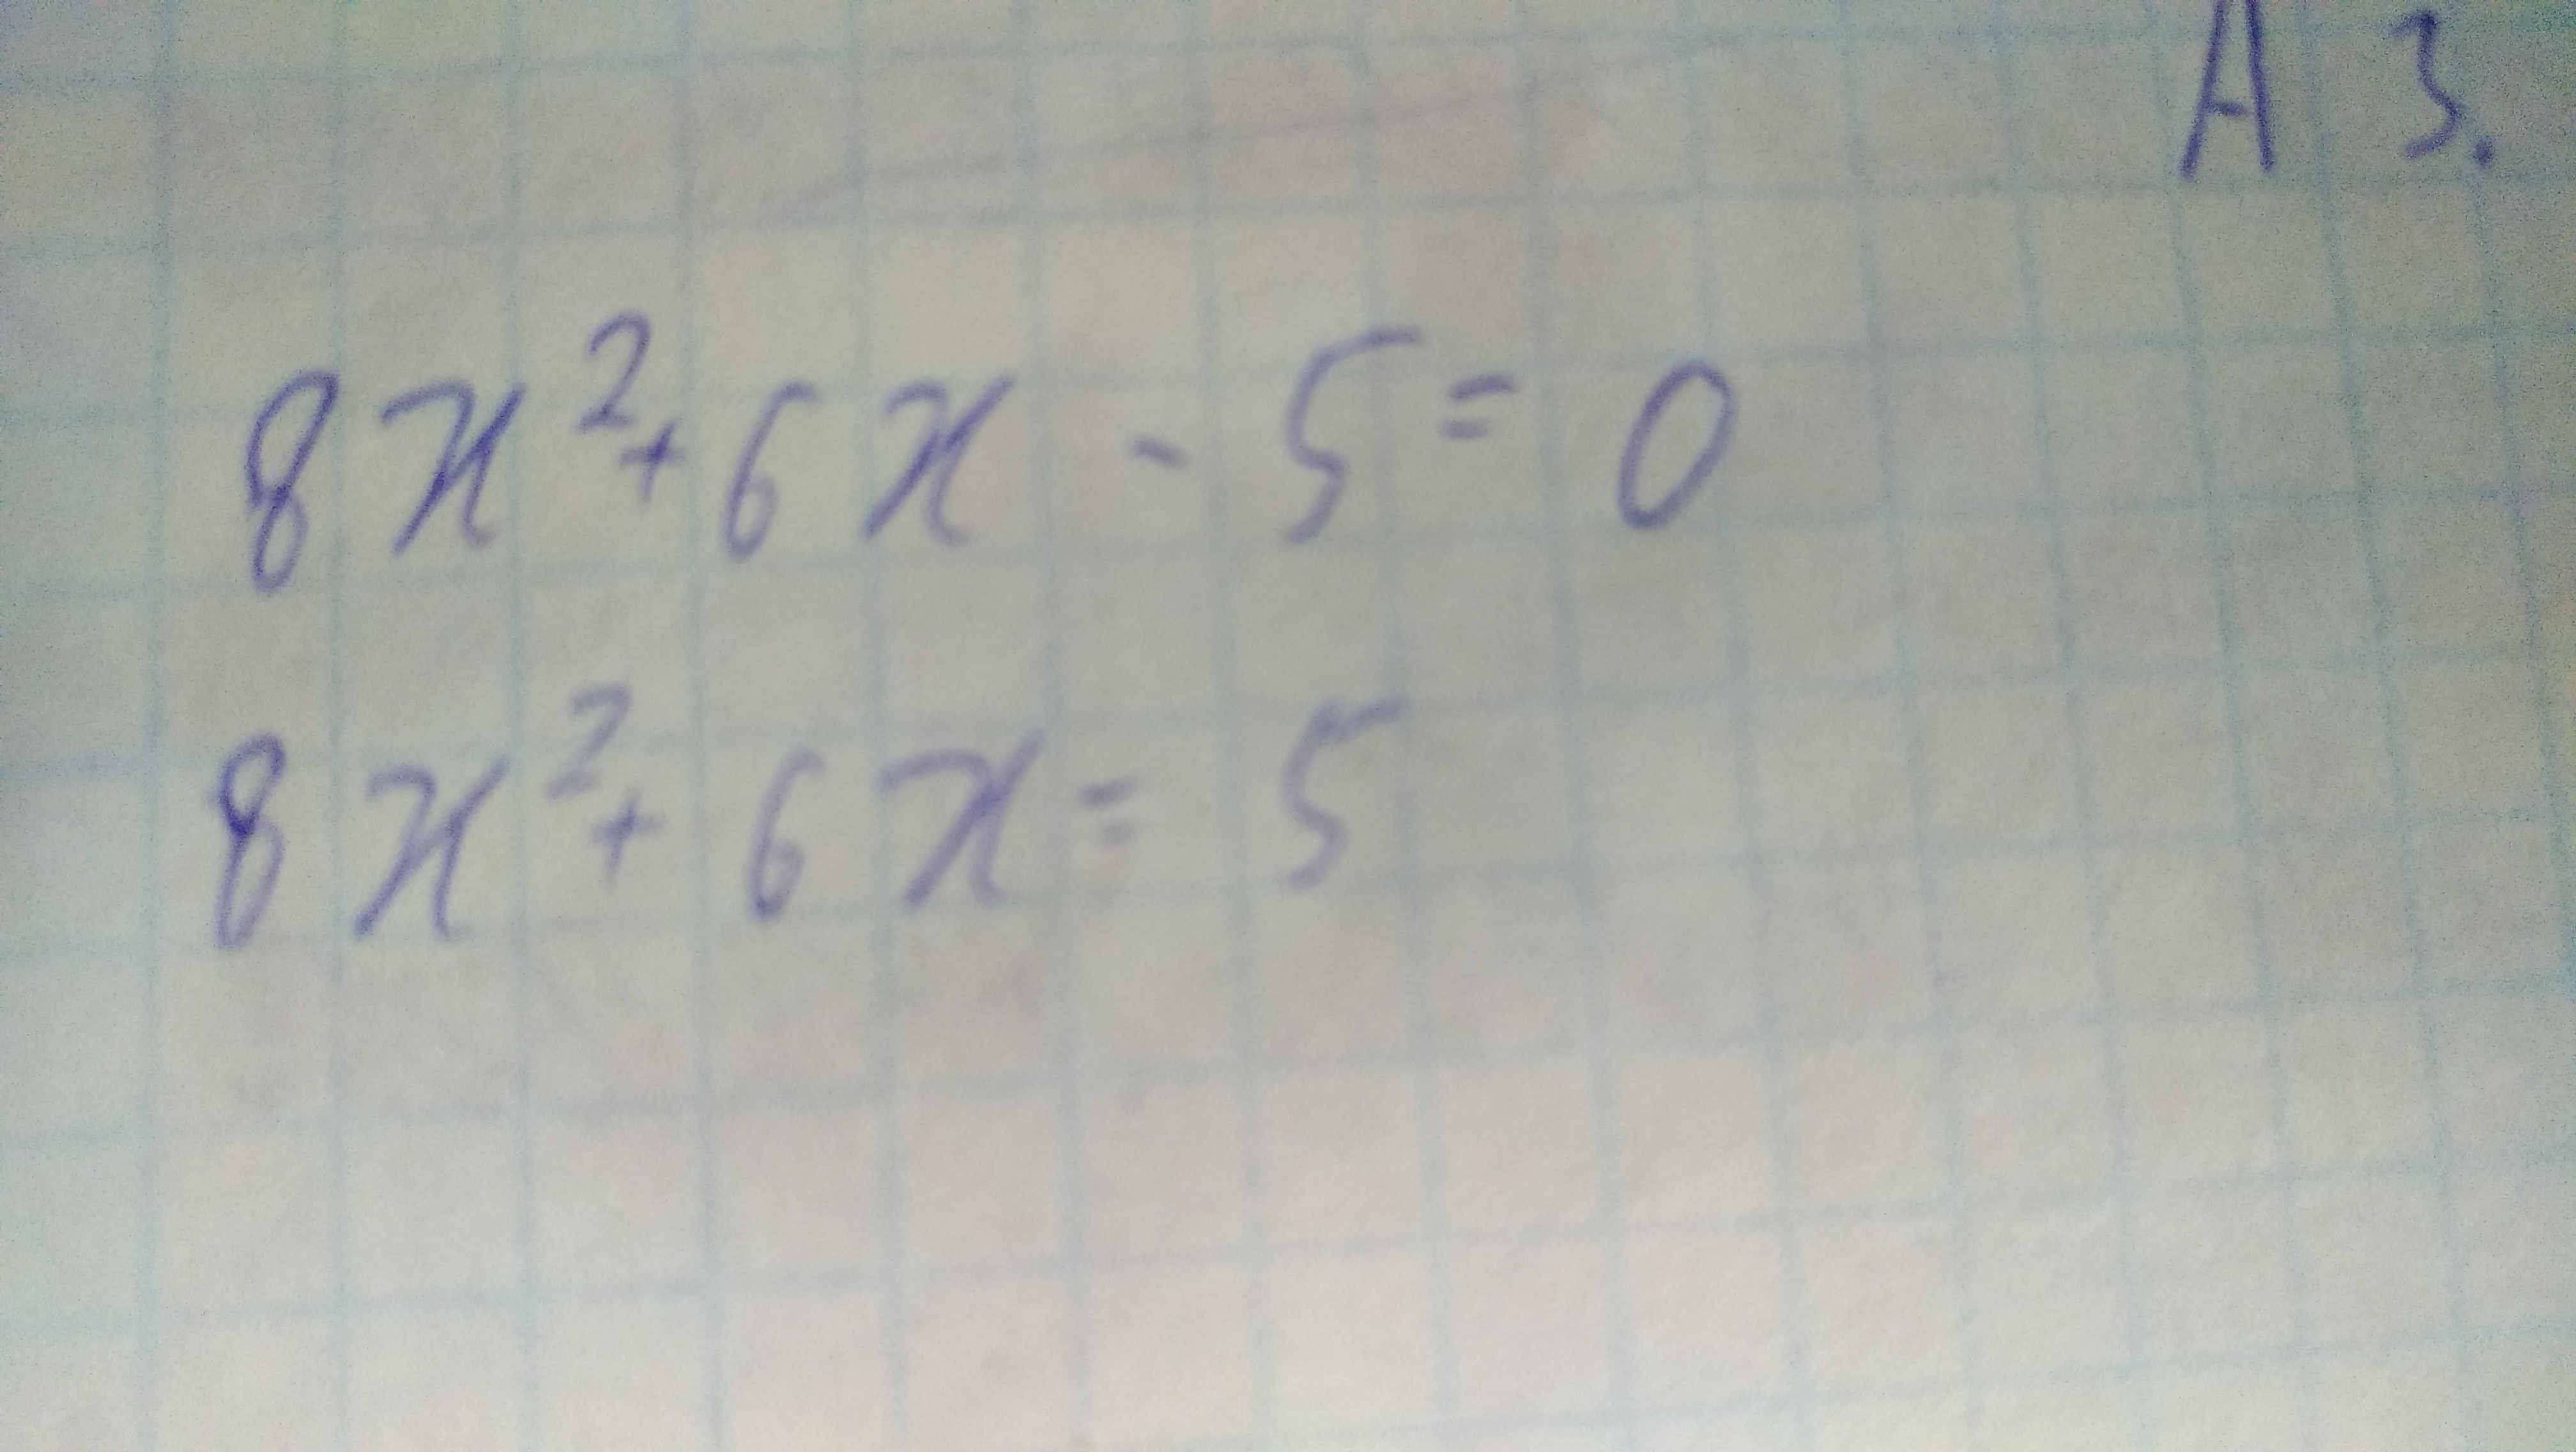 A 3.
8x²+6x - 5 = 0
8x²+ 6x = 5